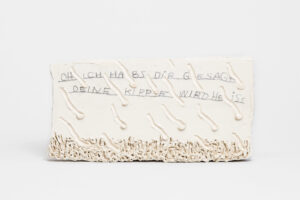 OH ICH HABS DIR GESAGT
DEINE KIPPSE WIRD HEISS